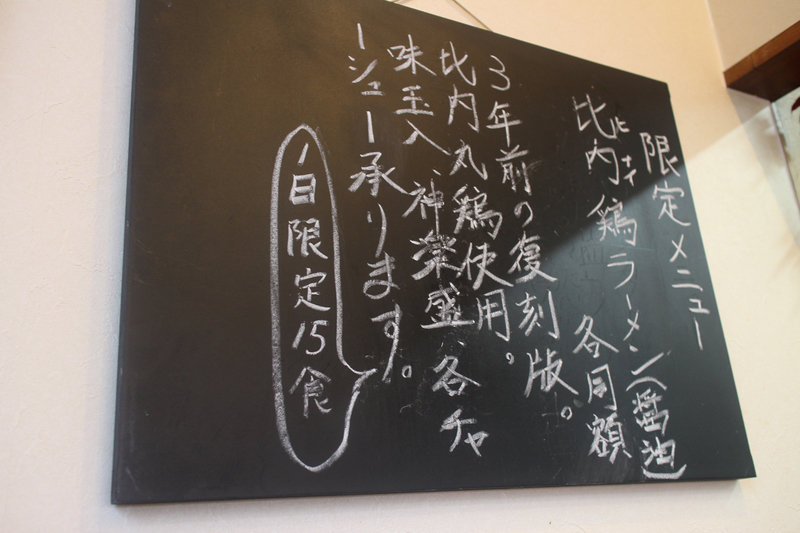 限定メニュー
比内鶏ラーメン(醤油)
ヒナイ
各同額
3年前の復刻版。
比内丸鶏使用。
味玉入、神栄盛、各チャ
ーシュー承ります。
1日限定15食